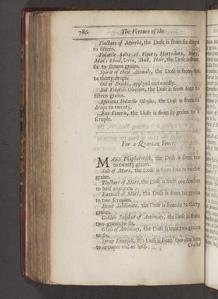 786 The Vertues of the
Tincture of Myrrh, the Dose is from six drops
to fifteen.
Volatile Salts of Vipers, Harts-horn,
Mans Blood, Urine, Skull, Hair, the Dose is from
six to fifteen grains.
Spirit of these Animals, the Dose is from ten
to thirty drops.
Oil of Bricks, applied outwardly.
the Dose is from four to
fifteen grains.
Spiritus Volatile the Dose is from
to twenty.
the Dose is from six grains to a
scruple.
For a Quartan Fever.
the Dose is from ten
to twenty grains.
Salt of Mars, the Dose is from
to twelve
grains.
Tincture of Mars, the Dose is from ten drops
to half an
Extract of Mars, the Dose is from ten grains
to two Scruples.
Sweet Sublimate, the Dose is from six to thirty
grains.
Golden Sulphur of Antimony, the Dose is from
two grains to six.
Glass of Antimony, the Dose is from two grains
to six.
Syrup Emetick, the Dose is from
an ounce and an half.